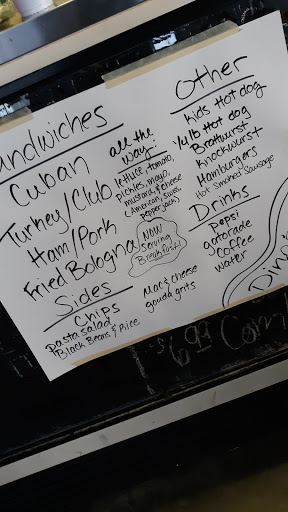 andwiches
Cuban
Turkey/Club
Ham/Pork
Fried Bologna
all the
way:
lettuce, tomato,
pickles, mayo,
mustard, & cheese
(American, swiss,
pepperjack)
NOW
Serving
Breakfast!
Sides
Chips
pasta salad
Black Beans & Rice
Mac & cheese
gouda grits
Other
Kids Hot dog
1/4 lb Hot dog
Bratwurst
Knockwurst
Hamburgers
Hot Smoked Sausage
Drinks
Pepsi
gatorade
Coffee
water